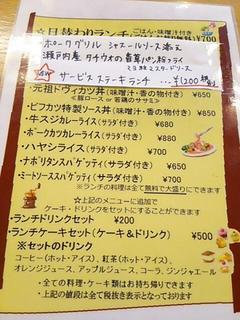 ☆日替わりランチ ごはん・味噌汁付き ¥700
ポークグリル シャスールソース添え
瀬戸内産タチウオの香草パン粉フライ
サービスステーキランチ … ¥1200
・元祖ドヴィカツ丼(味噌汁・香の物付き) ¥650
<豚ロース or 若鶏のササミ>
・ビフカツ特製ソース丼(味噌汁・香の物付き) ¥850
・牛スジカレーライス(サラダ付き) ¥680
・ポークカツカレーライス(サラダ付き) ¥880
・ハヤシライス(サラダ付き) ¥700
・ナポリタンスパゲティ(サラダ付き) ¥650
・ミートソーススパゲティ(サラダ付き) ¥650
※ランチの料理は全て無料で大盛りにできます
☆上記のメニューに追加で
ケーキ・ドリンクをセットにすることができます
・ランチドリンクセット ¥200
・ランチケーキセット(ケーキ&ドリンク) ¥500
※セットのドリンク
コーヒー(ホット・アイス)、紅茶(ホット・アイス)、
オレンジジュース、アップルジュース、コーラ、ジンジャエール
・全ての料理・ケーキ類はお持ち帰りできます
・上記の値段は全て税抜き表示となっております